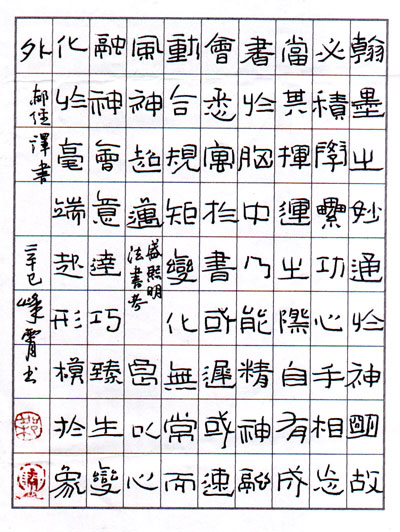 翰墨之妙通於神明故
必積學纍功心手相忘
當其揮運之際自有成
書於胸中乃能精神融
會悉寓於書或遲或速
動合規矩變化無常而
風神超邁
盛熙明
法書考
以心
融神會意達巧臻生變
化於毫端起形模於象
外
澤書
辛巳峰霄书